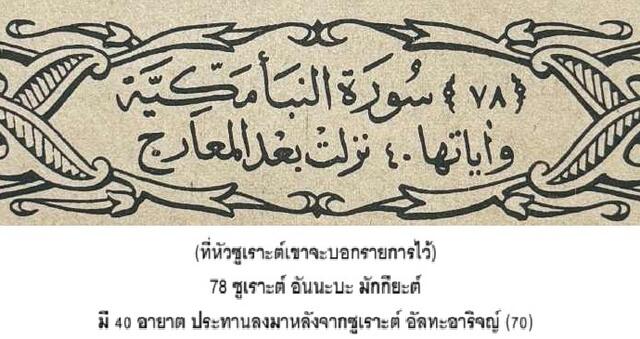 ﴿٧٨﴾ سُورَة النبَأ مَكِّيَّة
وَآيَاتها ٤٠ نزلتْ بَعْد المعَارج
(ที่หัวซูเราะต์เขาจะบอกรายการไว้)
78 ซูเราะต์ อันนะบะ มักกียะต์
มี 40 อายาต ประทานลงมาหลังจากซูเราะต์ อัลทะอาริจญ์ (70)